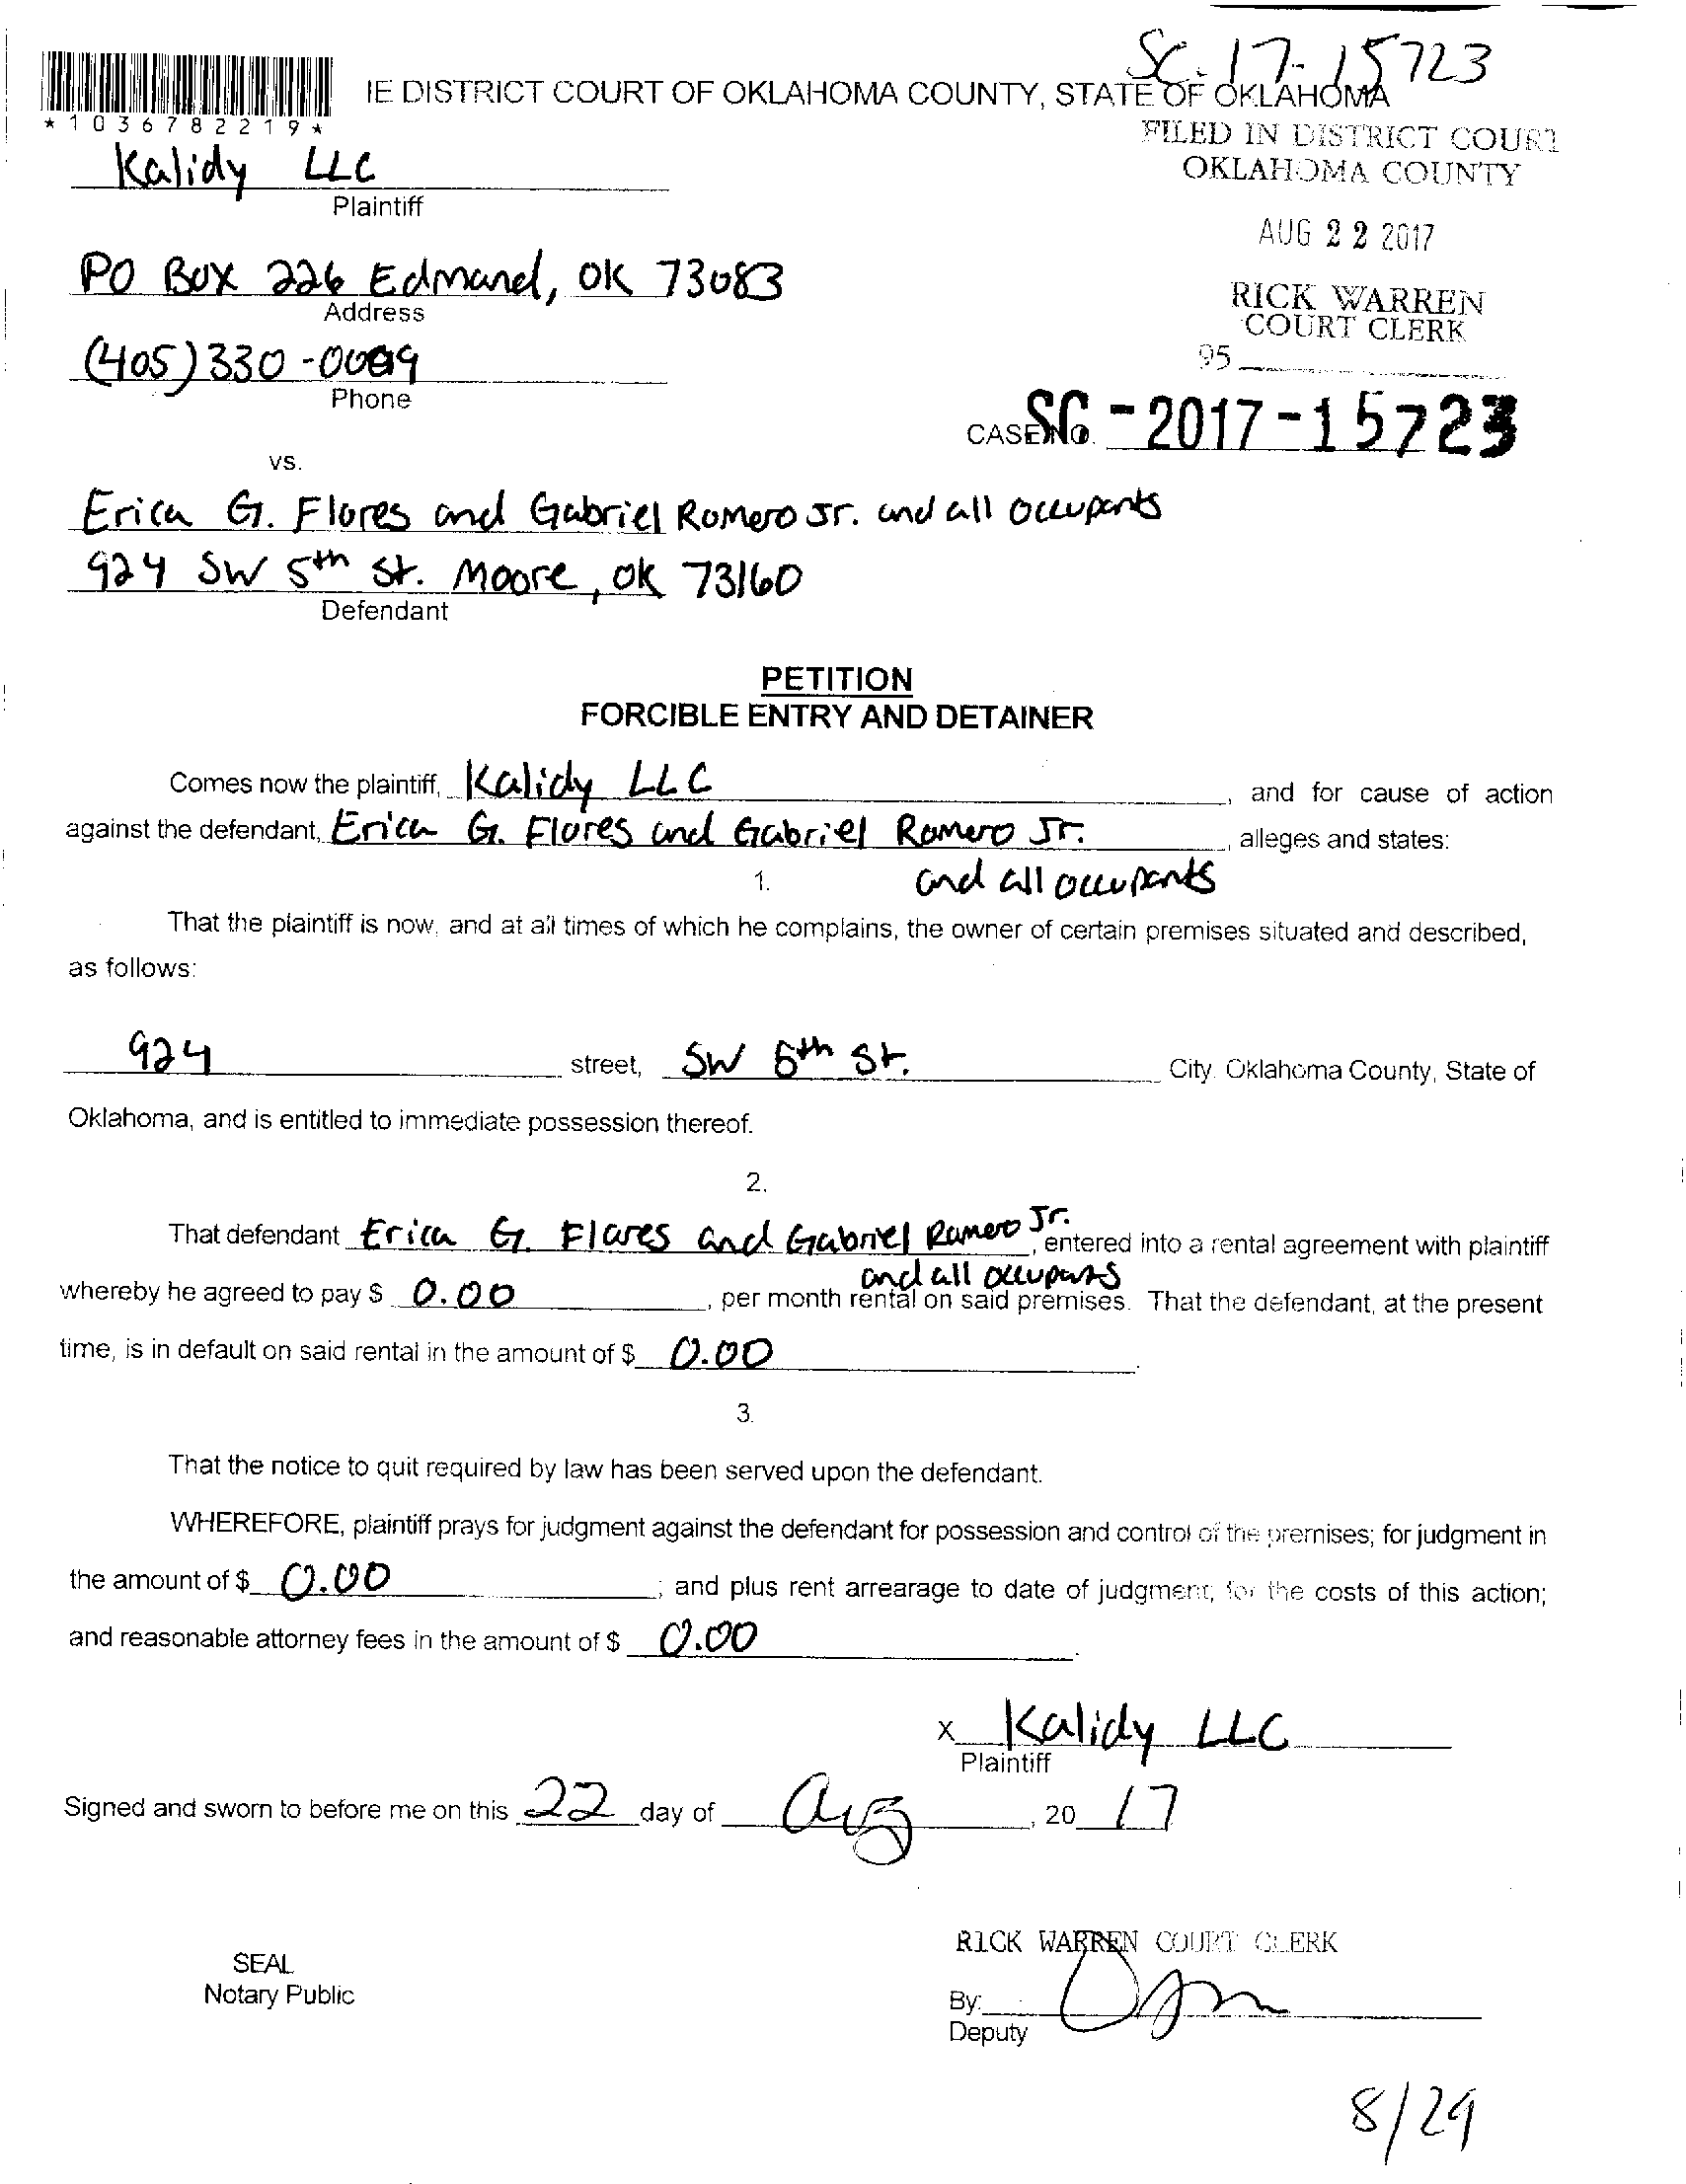 SC-17-15723
IE DISTRICT COURT OF OKLAHOMA COUNTY, STATE OF OKLAHOMA
*1036782219*
FILED IN DISTRICT COURT
OKLAHOMA COUNTY
Kalidy LLC
Plaintiff
AUG 22 2017
PO Box 226 Edmond, OK 73083
Address
RICK WARREN
COURT CLERK
(405) 330-0099
95
Phone
CASE NO. SC-2017-15723
vs.
Erica G. Flores and Gabriel Romero Jr. and all occupants
924 SW 5th St. Moore, OK 73160
Defendant
PETITION
FORCIBLE ENTRY AND DETAINER
Comes now the plaintiff, Kalidy LLC, and for cause of action
against the defendant, Erica G. Flores and Gabriel Romero Jr., alleges and states:
1. and all occupants
That the plaintiff is now, and at all times of which he complains, the owner of certain premises situated and described,
as follows:
924 street, SW 5th St. City, Oklahoma County, State of
Oklahoma, and is entitled to immediate possession thereof.
2.
That defendant Erica G. Flores and Gabriel Romero Jr., entered into a rental agreement with plaintiff
and all occupants
whereby he agreed to pay $ 0.00, per month rental on said premises. That the defendant, at the present
time, is in default on said rental in the amount of $ 0.00.
3.
That the notice to quit required by law has been served upon the defendant.
WHEREFORE, plaintiff prays for judgment against the defendant for possession and control of the premises; for judgment in
the amount of $ 0.00; and plus rent arrearage to date of judgment; for the costs of this action;
and reasonable attorney fees in the amount of $ 0.00.
X Kalidy LLC
Plaintiff
Signed and sworn to before me on this 22 day of Aug, 2017
RICK WARREN COURT CLERK
SEAL
Notary Public
By:
Deputy
8/29